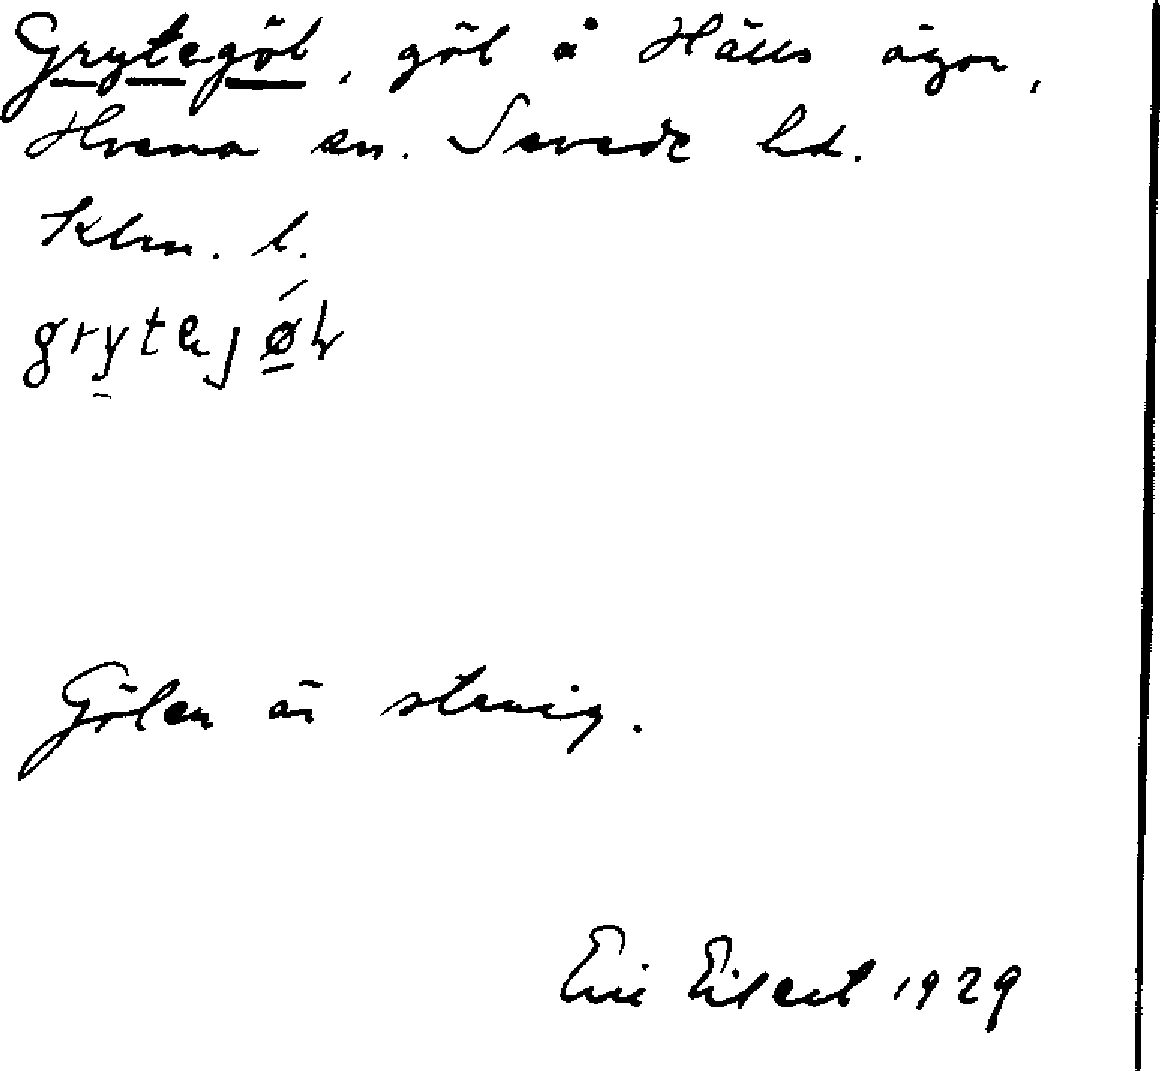 Grytegöl, göl å Hälls ägor,
Hvena sn. Sevede hd.
Klm. l.
Gölen är stenig.
Eric Eilert 1929